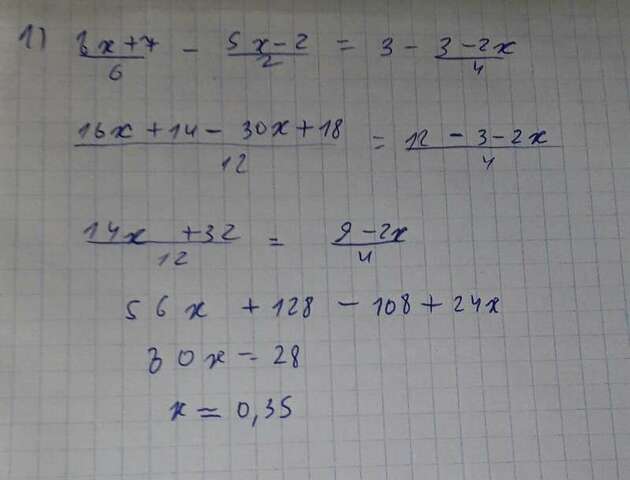 1) (8x+7)/6 - (5x-2)/2 = 3 - (3-2x)/4
(16x+14- 30x+18)/12 = (12 - 3-2x)/4
(14x +32)/12 = (9-2x)/4
56x +128 - 108+24x
80x - 28
x = 0,35